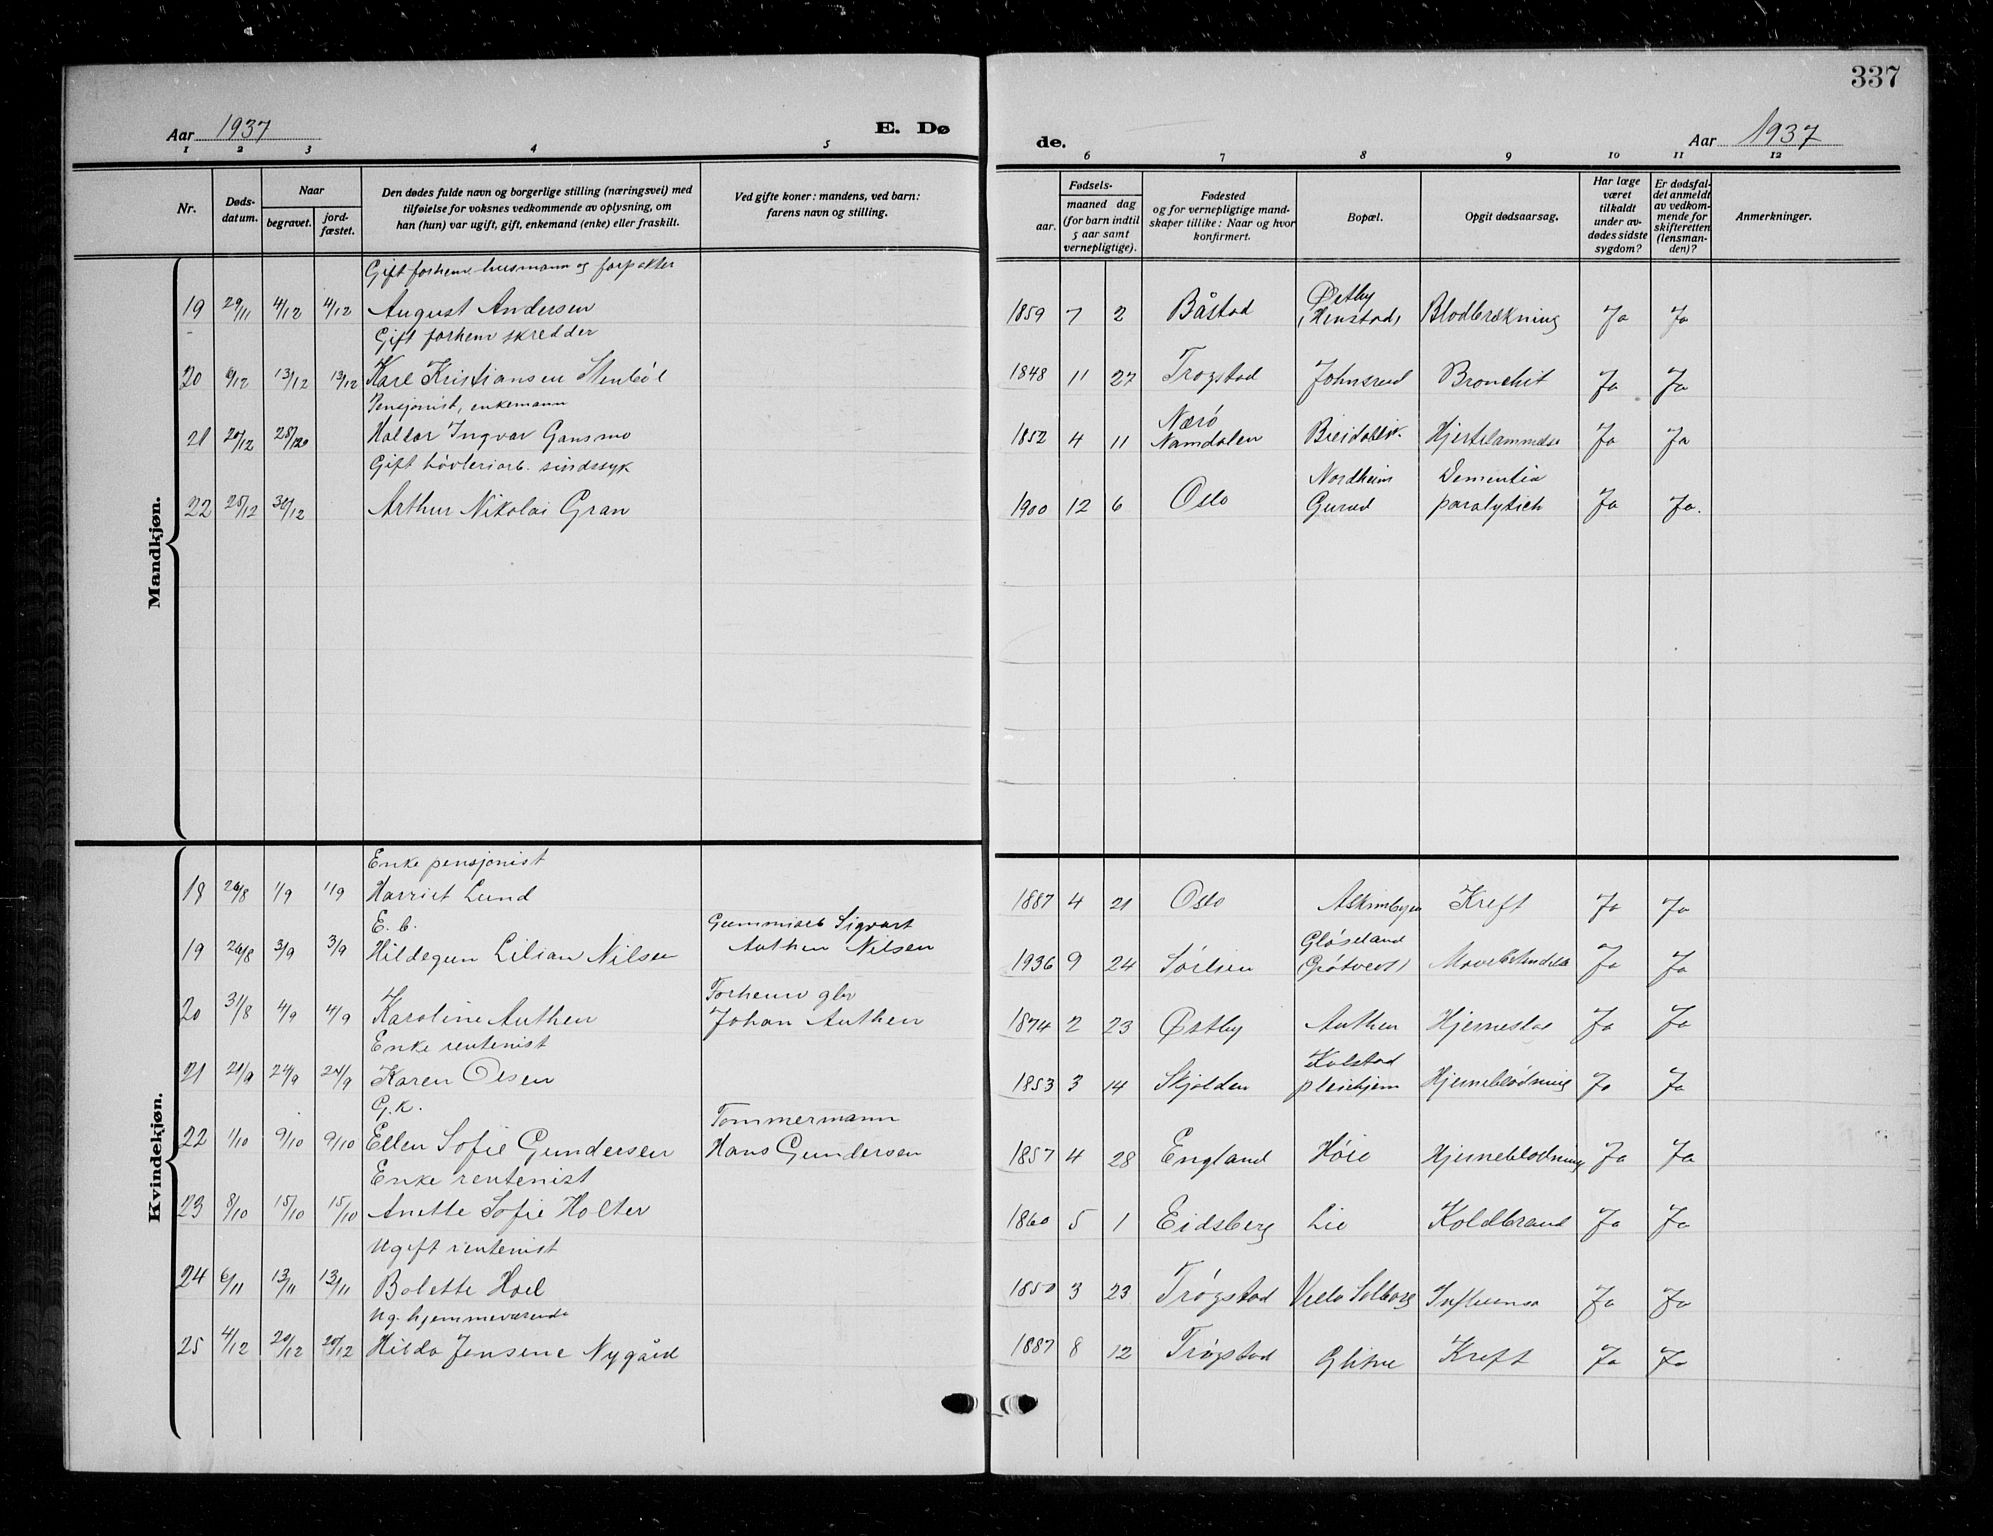 337
Aar 1937
E. Dø
de.
Aar 1937
1 2 3 4 5
6 7 8 9 10 11 12
Nr.
Døds-
datum.
Naar
begravet.
jord-
fæstet.
Den dødes fulde navn og borgerlige stilling (næringsvei) med
tilføielse for voksnes vedkommende av oplysning, om
han (hun) var ugift, gift, enkemand (enke) eller fraskilt.
Ved gifte koner: mandens, ved barn:
farens navn og stilling.
Fødsels-
aar.
maaned dag
(for barn indtil
5 aar samt
vernepligtige).
Fødested
og for vernepligtige mand-
skaper tillike: Naar og hvor
konfirmert.
Bopæl.
Opgit dødsaarsag.
Har læge
været
tilkaldt
under av-
dødes sidste
sygdom?
Er dødsfal-
det anmeldt
av vedkom-
mende for
skifteretten
(lensman-
den)?
Anmerkninger.
Mandkjøn.
Gift forhenv. husmann og forpakter
19 29/11 4/12 4/12 August Andersen 1859 7 2 Båstad Østby (Henstad) Blodbrækning Ja Ja
Gift forhenv skredder
20 6/12 13/12 13/12 Karl Kristiansen Stenbøl 1848 11 27 Trøgstad Johnsrud Bronchit Ja Ja
Pensjonist, enkemann
21 20/12 28/12 Hallor Ingvar Gansmo 1852 4 11 Nærø Namdalen Hjertelammelse Ja Ja
Gift høvleriarb. sindssyk
22 25/12 30/12 Arthur Nikolai Gran 1900 12 6 Oslo Nordheim Gurud Dementia paralytich Ja Ja.
Kvindekjøn.
Enke pensjonist
18 26/8 1/9 1/9 Harriet Lund 1887 4 21 Oslo Askimbyen Kreft Ja Ja
E. b. Gummiarb Sigvart
19 26/8 3/9 3/9 Hildegun Lilian Nilsen Authen Nilsen 1936 9 24 Gløseland (Grøtvedt) Ja Ja
Forhenv gbr
20 31/8 4/9 4/9 Karoline Authen Johan Authen 1874 2 23 Østby Authen Hjerneslag Ja Ja
Enke rentenist
21 21/9 24/9 24/9 Karen Olsen 1853 3 14 Skjolden Kolstad pleiehjem Hjerneblødning Ja Ja
G.k. Tømmermann
22 1/10 9/10 9/10 Ellen Sofie Gundersen Hans Gundersen 1857 4 28 England Høie Hjerneblødning Ja Ja
Enke rentenist
23 8/10 15/10 15/10 Anette Sofie Holter 1860 5 1 Eidsberg Lie Koldbrand Ja Ja
Ugift rentenist
24 6/11 13/11 13/11 Bolette Hoel 1850 3 23 Trøgstad Villa Solborg Influensa Ja Ja
Ug. hjemmeværende
25 4/12 20/12 20/12 Hilda Jensine Nygård 1887 8 12 Trøgstad Glitne Kreft Ja Ja